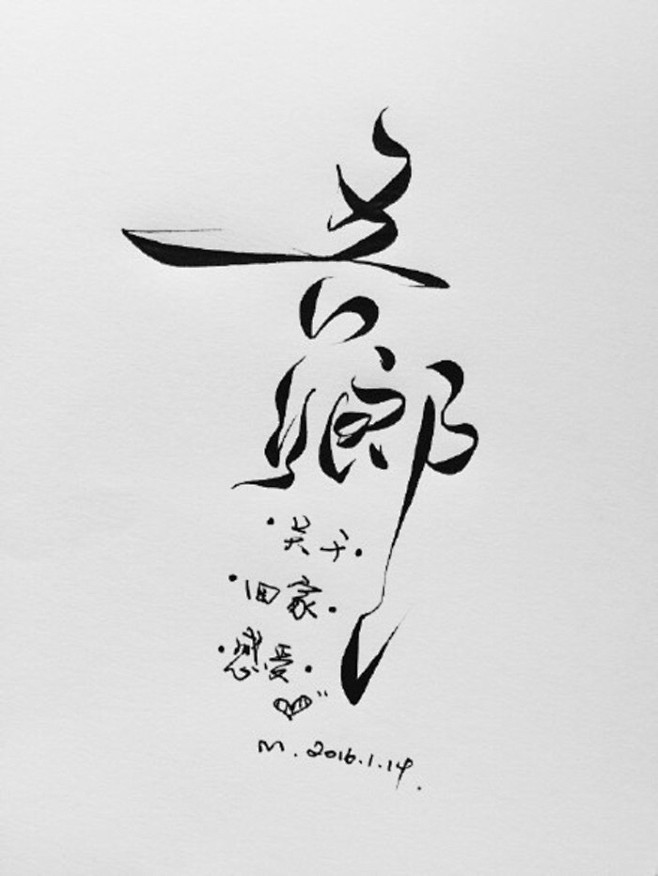 吾
鄉
·关于·
·回家·
·感受·
M.2016.1.14.